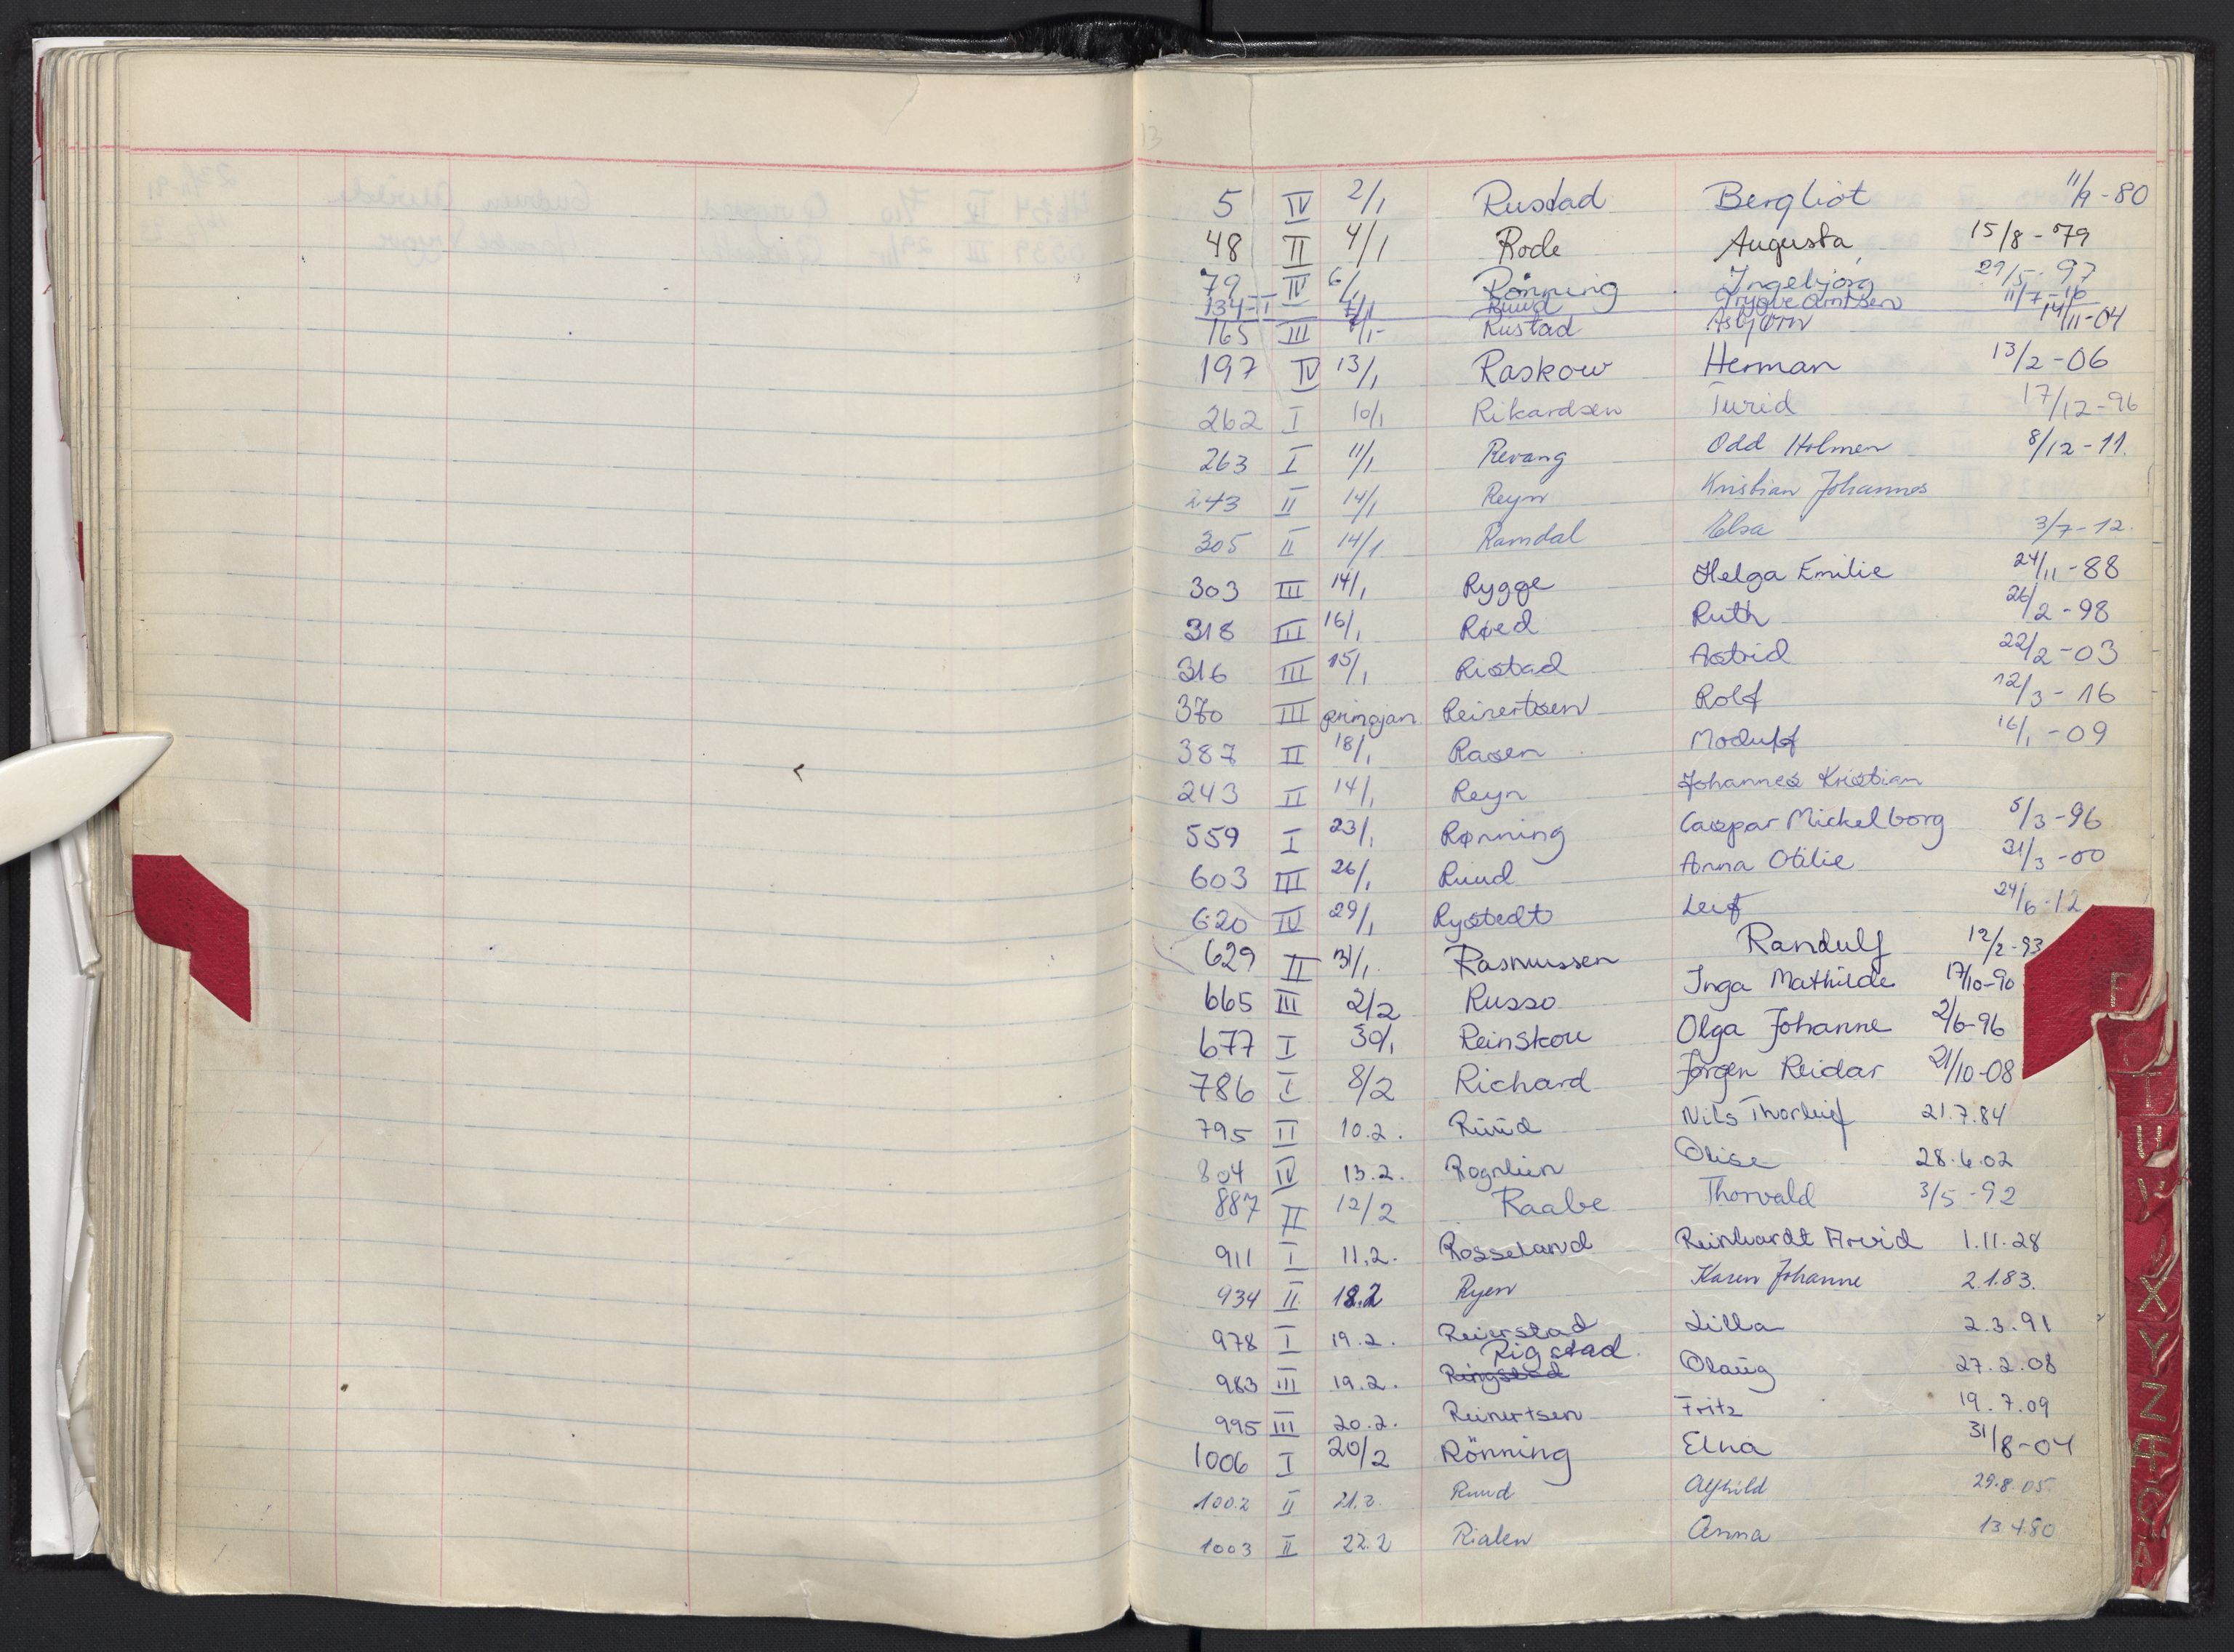 13
5 IV 2/1 Rustad Bergliot 11/9-80
48 II 4/1 Rode Augusta 15/8-79
79 IV 6/1 Rönning Ingebjørg 29/5-97
134 II 7/1 Ruud Trygve Arntsen 11/7-10
165 III 7/1 Rustad Asbjørn 14/11-04
197 IV 13/1 Raskow Herman 13/2-06
262 I 10/1 Rikardsen Turid 17/12-96
263 I 11/1 Revang Odd Holmen 8/12-11.
243 II 14/1 Reyn Kristian Johannes
305 II 14/1 Ramdal Elsa 3/7-12.
303 III 14/1 Rygge Helga Emilie 24/11-88
318 III 16/1 Røed Ruth 26/2-98
316 III 15/1 Ristad Astrid 22/2-03
370 III Reinertsen Rolf 12/3-16
387 II 18/1 Rasen Modulf 16/1-09
243 II 14/1 Reyn Johannes Kristian
559 I 23/1 Rønning Caspar Mickelborg 5/3-96
603 III 26/1 Ruud Anna Otilie 21/3-00
620 IV 29/1 Rystedt Leif 24/6-12
629 II 31/1 Rasmussen Randulf 12/2-93
665 III 2/2 Russo Inga Mathilde 17/10-90
677 I 30/1 Reinskou Olga Johanne 2/6-96
786 I 8/2 Richard Jørgen Reidar 21/10-08
795 II 10.2. Ruud Nils Thorleif 21.7.84
804 IV 13.2. Rognlien Olise 28.6.02
887 II 12/2 Raabe Thorvald 3/5-92
911 I 11.2. Rosseland Reinhardt Arvid 1.11.28
934 II 18.2 Ryen Karen Johanne 2.1.83.
978 I 19.2. Reierstad Lilla 2.3.91
Rigstad
983 III 19.2. Ringstad Olaug 27.2.08
995 III 20.2. Reinertsen Fritz 19.7.09
1006 I 20/2 Rönning Elna 31/8-04
1002 II 21.2. Ruud Alfhild 29.8.05
1003 II 22.2 Rialen Anna 13.4.80
T
U
V
X
Y
Z
Æ
Ø